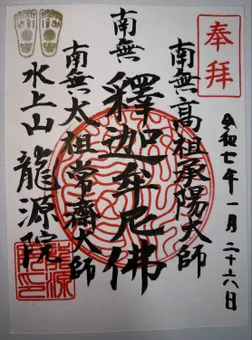 奉拝
令和七年一月二十六日
南無高祖承陽大師
南無
釋迦牟尼佛
南無太祖常濟大師
水上山 龍源院